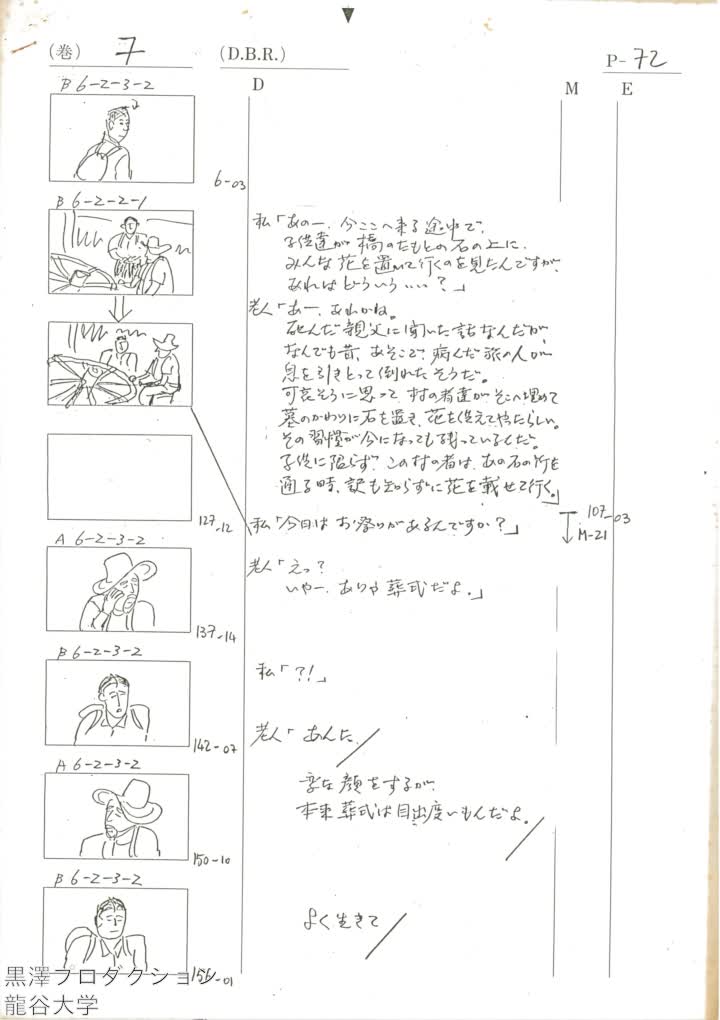 (巻) 7 (D.B.R.) P-72
D M E
B 6-2-3-2
6-03
B 6-2-2-1
私「あのー、今ここへ来る途中で、
子供達が橋のたもとの石の上に、
みんな花を置いて行くのを見たんですが、
あれはどういう……?」
老人「あー、あれかね。
死んだ親父に聞いた話なんだが、
なんでも昔、あそこで、病んだ旅の人が、
息を引きとって倒れたそうだ。
可哀そうに思って、村の者達がそこへ埋めて
墓のかわりに石を置き、花を供えてやったらしい。
その習慣が今になっても残っているんだ。
子供に限らず、この村の者は、あの石の所を
通る時、訳も知らずに花を載せて行く。」
127-12
私「今日は お祭りがあるんですか?」
107-03
M-21
A 6-2-3-2
老人「えっ?
いやー、ありゃ葬式だよ。」
137-14
B 6-2-3-2
私「?!」
142-07
老人「あんた、
A 6-2-3-2
変な顔をするが、
本来葬式は目出度いもんだよ。
150-10
B 6-2-3-2
よく生きて
156-01
黒澤プロダクション
龍谷大学